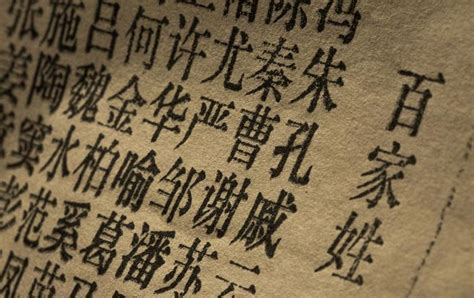 百家姓
冯陈褚
朱秦尤许何吕施张
孔曹严华金魏陶姜
戚谢邹喻柏水窦
云苏潘葛奚范彭
马苗凤